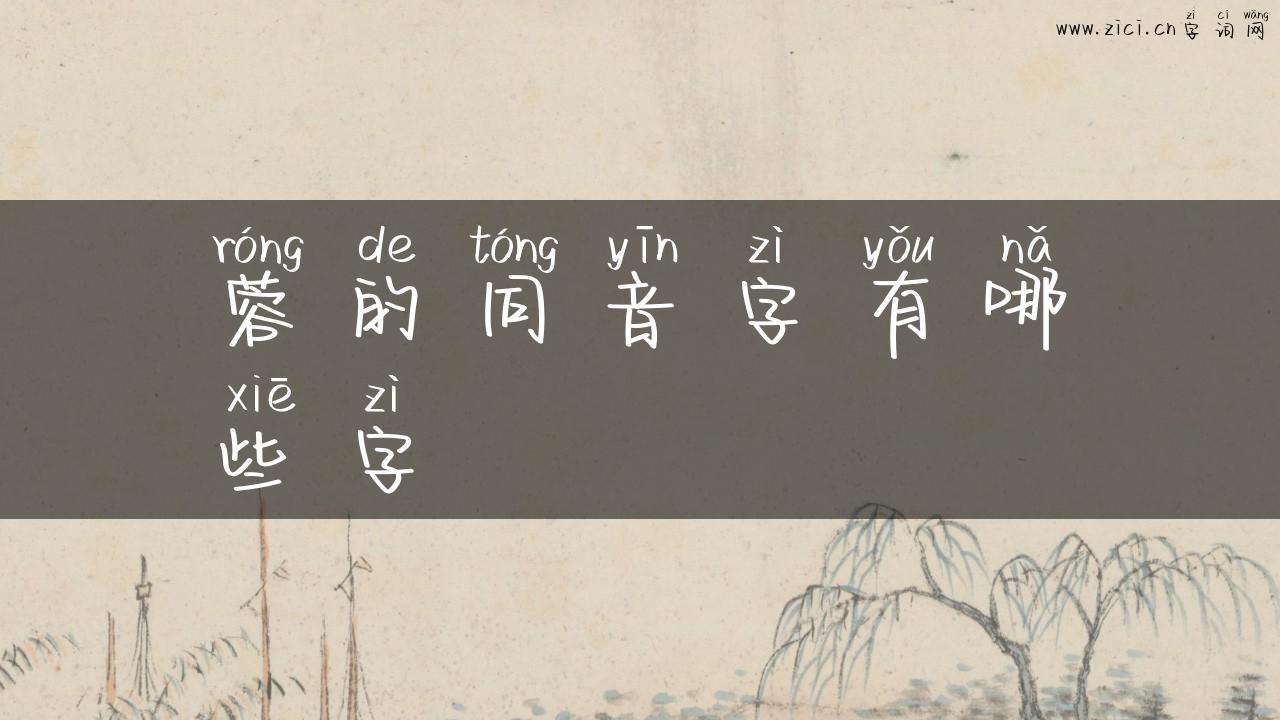 zì cí wǎng
www.zici.cn 字 词 网
róng de tóng yīn zì yǒu nǎ
蓉 的 同 音 字 有 哪
xiē zì
些 字